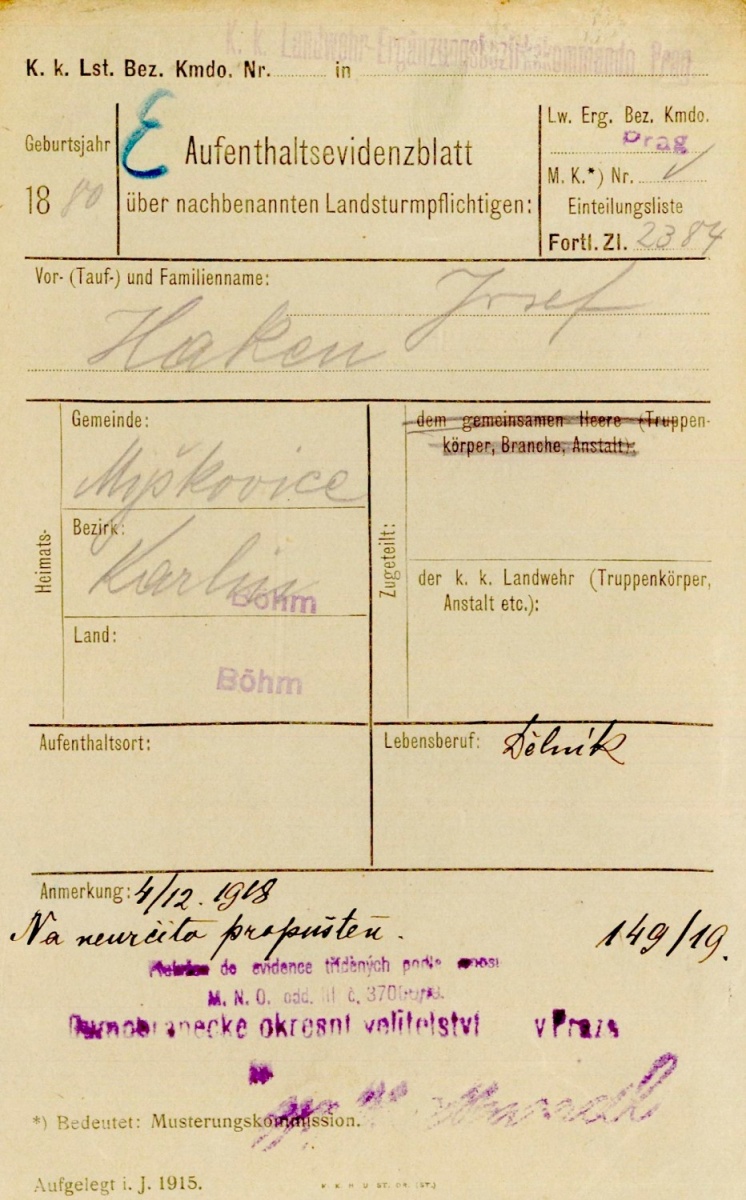 K. k. Landwehr-Ergänzungsbezirkskommando Prag
K. k. Lst. Bez. Kmdo. Nr. in
Geburtsjahr
1880
E
Aufenthaltsevidenzblatt
über nachbenannten Landsturmpflichtigen:
Lw. Erg. Bez. Kmdo.
Prag
M. K.*) Nr.
Einteilungsliste
Fortl. Zl. 2384
Vor- (Tauf-) und Familienname:
Josef
Haken
Heimats-
Gemeinde:
Myškovice
Bezirk:
Karlin
Böhm
Land:
Böhm
Zugeteilt:
dem gemeinsamen Heere (Truppen-
körper, Branche, Anstalt):
der k. k. Landwehr (Truppenkörper,
Anstalt etc.):
Aufenthaltsort:
Lebensberuf: Dělník
Anmerkung: 4/12. 1918
Na neurčito propuštěn. 149/19.
do evidence tříděných podle
M. N. O. odd. III č.
okresní velitelství v Praze
*) Bedeutet: Musterungskommission.
Aufgelegt i. J. 1915.